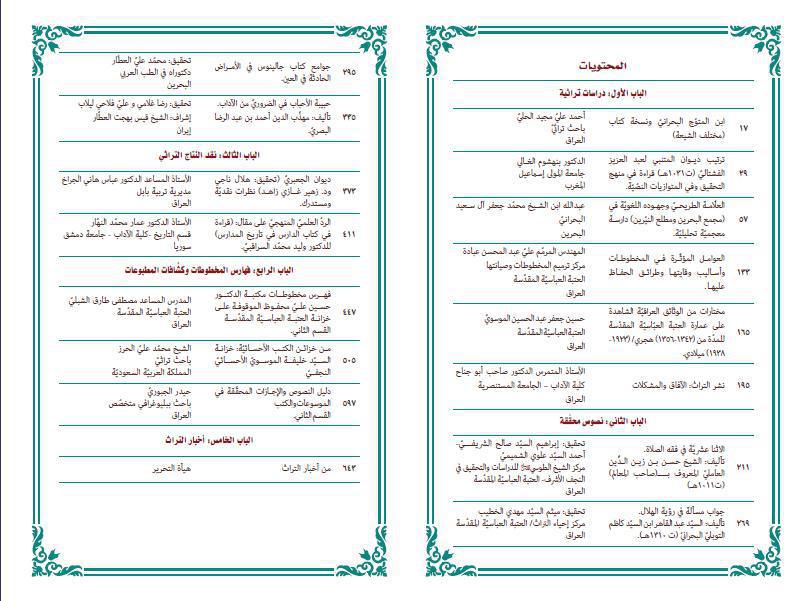 المحتويات
الباب الأول: دراسات تراثية
١٧
ابن المتوّج البحرانيّ ونسخة كتاب
(مختلف الشيعة)
أحمد عليّ مجيد الحليّ
باحث تراثيّ
العراق
٢٩
ترتيب ديوان المتنبي لعبد العزيز
الفشتاليّ (ت١٠٣١هـ) قراءة في منهج
التحقيق وفي المتوازيات النصّيّة.
الدكتور بنهشوم الغالي
جامعة المولى إسماعيل
المغرب
٥٧
العلّامة الطريحيّ وجهوده اللغويّة في
(مجمع البحرين ومطلع النيّرين) دراسة
معجميّة تحليليّة.
عبدالله ابن الشيخ محمّد جعفر آل سعيد
البحرانيّ
البحرين
١٣٣
العوامل المؤثّرة في المخطوطات
وأساليب وقايتها وطرائق الحفاظ
عليها.
المهندس المرمّم عليّ عبد المحسن عبادة
مركز ترميم المخطوطات وصيانتها
العتبة العباسيّة المقدّسة
العراق
١٦٥
مختارات من الوثائق العراقيّة الشاهدة
على عمارة العتبة العبّاسيّة المقدّسة
للمدّة من (١٣٤٢-١٣٥٦) هجري/ (١٩٢٣-
١٩٣٨) ميلادي.
حسين جعفر عبد الحسين الموسويّ
العتبة العباسيّة المقدّسة
العراق
١٩٥
نشر التراث: الآفاق والمشكلات
الأستاذ المتمرس الدكتور صاحب أبو جناح
كلية الآداب - الجامعة المستنصرية
العراق
الباب الثاني: نصوص محققة
٢١١
الاثنا عشريّة في فقه الصلاة.
تأليف: الشيخ حسن بن زين الدِّين
العامليّ المعروف بـ(صاحب المعالم)
(ت١٠١١هـ)
تحقيق: إبراهيم السيّد صالح الشريفيّ-
أحمد السيّد علوي الشميميّ
مركز الشيخ الطوسيّ للدراسات والتحقيق في
النجف الأشرف- العتبة العباسيّة المقدّسة
العراق
٢٦٩
جواب مسألة في رؤية الهلال.
تأليف: السيّد عبد القاهر ابن السيّد كاظم
التوبليّ البحرانيّ (ت ١٣١٠هـ).
تحقيق: ميثم السيّد مهدي الخطيب
مركز إحياء التراث/ العتبة العباسيّة المقدّسة
العراق
٢٩٥
جوامع كتاب جالينوس في الأمراض
الحادثة في العين.
تحقيق: محمّد عليّ العطّار
دكتوراه في الطب العربي
البحرين
٣٣٥
حبيبة الأحباب في الضروريّ من الآداب.
تأليف: مهذّب الدين أحمد بن عبد الرضا
البصريّ.
تحقيق: رضا غلامي و عليّ فلاحي ليلاب
إشراف: الشيخ قيس بهجت العطّار
إيران
الباب الثالث: نقد النتاج التراثي
٣٧٣
ديوان الجعبريّ (تحقيق: هلال ناجي
ود. زهير غازي زاهد) نظرات نقديّة
ومستدرك.
الأستاذ المساعد الدكتور عباس هاني الجراخ
مديرية تربية بابل
العراق
٤١١
الردّ العلميّ المنهجيّ على مقال: (قراءة
في كتاب الدارس في تاريخ المدارس)
للدكتور وليد محمّد السراقبيّ.
الأستاذ الدكتور عمار محمّد النهّار
قسم التاريخ -كلية الآداب - جامعة دمشق
سوريا
الباب الرابع: فهارس المخطوطات وكشّافات المطبوعات
٤٤٧
فهرس مخطوطات مكتبة الدكتور
حسين عليّ محفوظ الموقوفة على
خزانة العتبة العباسيّة المقدّسة
القسم الثاني.
المدرس المساعد مصطفى طارق الشبليّ
العتبة العباسيّة المقدسة
العراق
٥٠٥
من خزائن الكتب الأحسائيّة: خزانة
السيّد خليفة الموسويّ الأحسائيّ
النجفيّ
الشيخ محمّد عليّ الحرز
باحث تراثيّ
المملكة العربيّة السعوديّة
٥٩٧
دليل النصوص والإجازات المحقّقة في
الموسوعات والكتب
القسم الثاني.
حيدر الجبوريّ
باحث ببليوغرافي متخصّص
العراق
الباب الخامس: أخبار التراث
٦٤٣
من أخبار التراث
هيأة التحرير